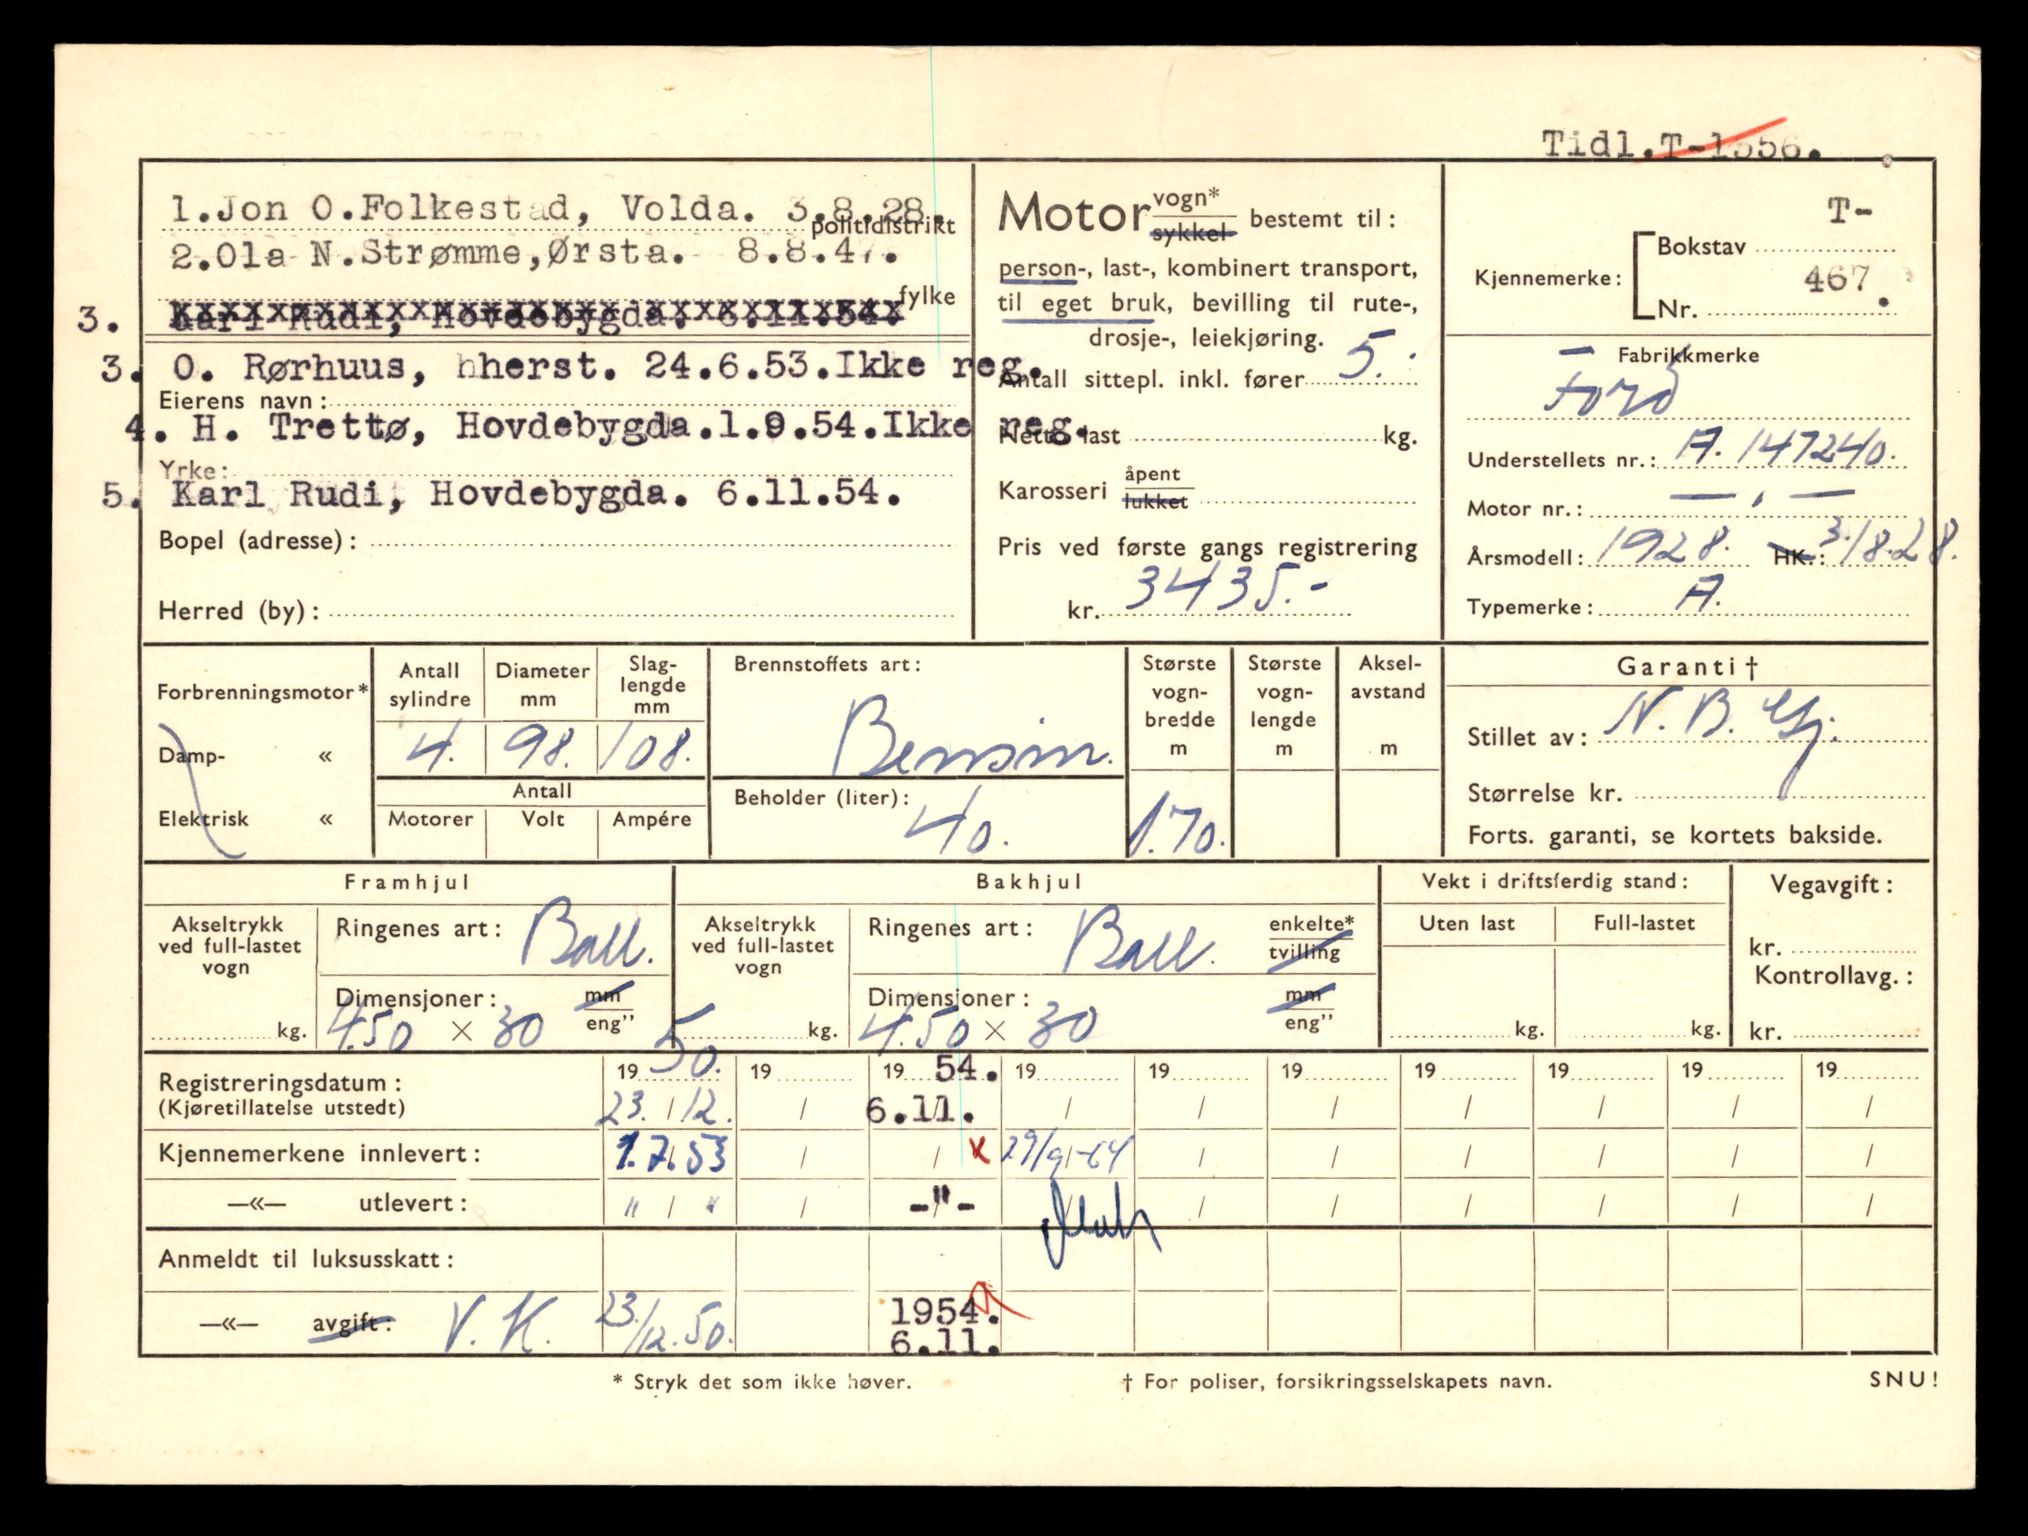 Tidl.T-1556.
1.Jon O.Folkestad, Volda. 3.8.28.
politidistrikt
2.Ola N.Strømme,Ørsta. 8.8.47.
fylke
3. Karl Rudi, Hovdebygda. 6.11.54.
3. O. Rørhuus, hherst. 24.6.53.Ikke reg.
Eierens navn:
4. H. Trettø, Hovdebygda.1.9.54.Ikke reg.
Yrke:
5. Karl Rudi, Hovdebygda. 6.11.54.
Bopel (adresse):
Herred (by):
Motor vogn* sykkel bestemt til:
person-, last-, kombinert transport,
til eget bruk, bevilling til rute-,
drosje-, leiekjøring.
Antall sittepl. inkl. fører 5.
Netto last kg.
Karosseri åpent lukket
Pris ved første gangs registrering
kr. 3435.-
T-
Bokstav
Kjennemerke:
467.
Nr.
Fabrikkmerke
Ford
Understellets nr.: A. 147240.
Motor nr.: — " —
Årsmodell: 1928. HK.: 3./8.28.
Typemerke: A.
Forbrenningsmotor*
Damp- «
Elektrisk «
Antall sylindre
Diameter mm
Slag-lengde mm
4. 98. 108.
Antall
Motorer Volt Ampére
Brennstoffets art:
Bensin.
Beholder (liter):
40.
Største vogn-bredde m
Største vogn-lengde m
Aksel-avstand m
1.70.
Garanti †
Stillet av: N. B.
Størrelse kr.
Forts. garanti, se kortets bakside.
Framhjul
Akseltrykk ved full-lastet vogn
kg.
Ringenes art: Ball.
Dimensjoner: mm eng"
4.50 × 30
Bakhjul
Akseltrykk ved full-lastet vogn
kg.
Ringenes art: Ball. enkelte* tvilling
Dimensjoner: mm eng"
4.50 × 30
Vekt i driftsferdig stand:
Uten last Full-lastet
kg. kg.
Vegavgift:
kr.
Kontrollavg.:
kr.
Registreringsdatum: 19 50. 19 19 54. 19 19 19 19 19 19 19
(Kjøretillatelse utstedt) 23. / 12. / 6.11. / / / / / / /
Kjennemerkene innlevert: 1.7.53 / / x 29/9-64 / / / / / /
—«— utlevert: " / " / -"- / / / / / /
Anmeldt til luksusskatt:
—«— avgift: V. K. 23./12.50. 1954. 6.11.
* Stryk det som ikke høver.
† For poliser, forsikringsselskapets navn.
SNU!